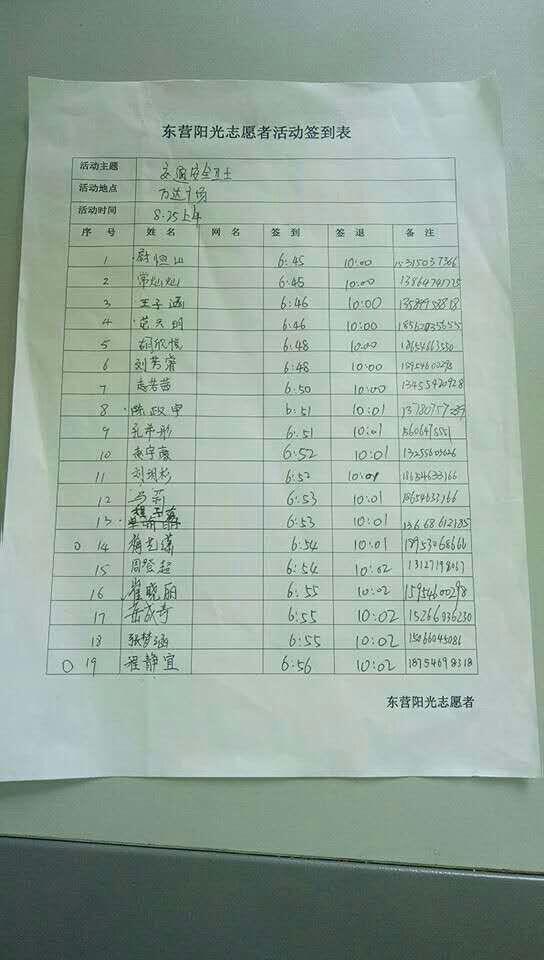 东营阳光志愿者活动签到表
活动主题 交通安全卫士
活动地点 万达广场
活动时间 8.25上午
序 号 姓 名 网 名 签 到 签 退 备 注
1 尉恒山 6:45 10:00 15315037366
2 常灿灿 6:45 10:00
3 王子涵 6:46 10:00
4 范天明 6:46 10:00
5 胡欣悦 6:48 10:00 18654663550
6 刘芳蓉 6:48 10:00 15954600298
7 6:50 10:00 13455420928
8 陈政宇 6:51 10:01
9 6:51 10:01
10 6:52 10:01 13255605626
11 6:52 10:01 18654633166
12 马莉 6:53 10:01 18654633166
13 6:53 10:01 13668612185
14 6:54 10:01 18953068666
15 周登超 6:54 10:02 13127198067
16 崔晓丽 6:55 10:02 15954600298
17 岳成奇 6:55 10:02 15266036230
18 张梦涵 6:55 10:02 15066045086
19 程静宜 6:56 10:02 18954698318
东营阳光志愿者